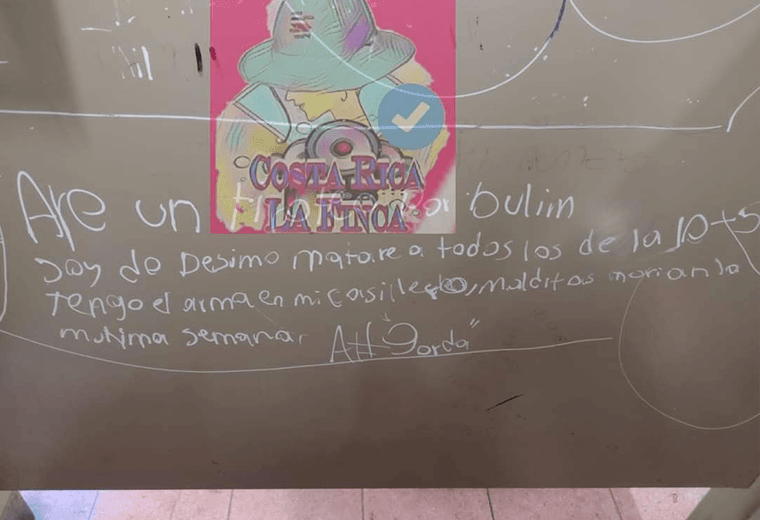 Nil
COSTA RICA
LA FINCA
Are un por bulin
soy de Desimo matare a todos los de la 10-t5
Tengo el arma en mi casillero, malditos morian la
mutima semana,
Att Gorda"